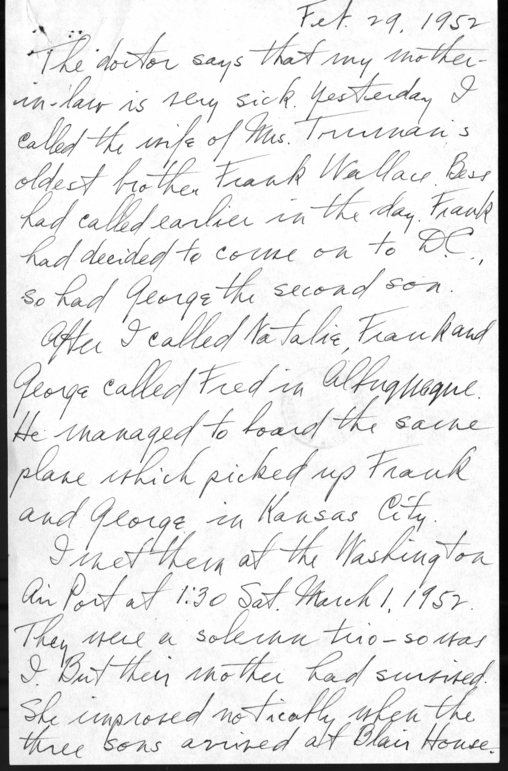 Feb. 29, 1952
The doctor says that my mother-
in-law is very sick. Yesterday I
called the wife of Mrs. Truman's
oldest brother Frank Wallace. Bess
had called earlier in the day. Frank
had decided to come on to D.C.,
so had George the second son.
After I called Natalie, Frank and
George called Fred in Albuquerque.
He managed to board the same
plane which picked up Frank
and George in Kansas City.
I met them at the Washington
Air Port at 1:30 Sat. March 1, 1952.
They were a solemn trio - so was
I. But their mother had survived.
She improved noticably when the
three sons arrived at Blair House.